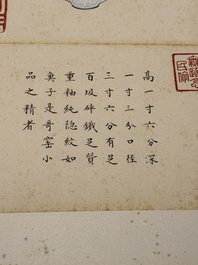 高一寸六分深
一寸三分口径
三寸六分有足
百圾碎鐵足質
重釉純隐紋如
魚子是哥窑小
品之精者